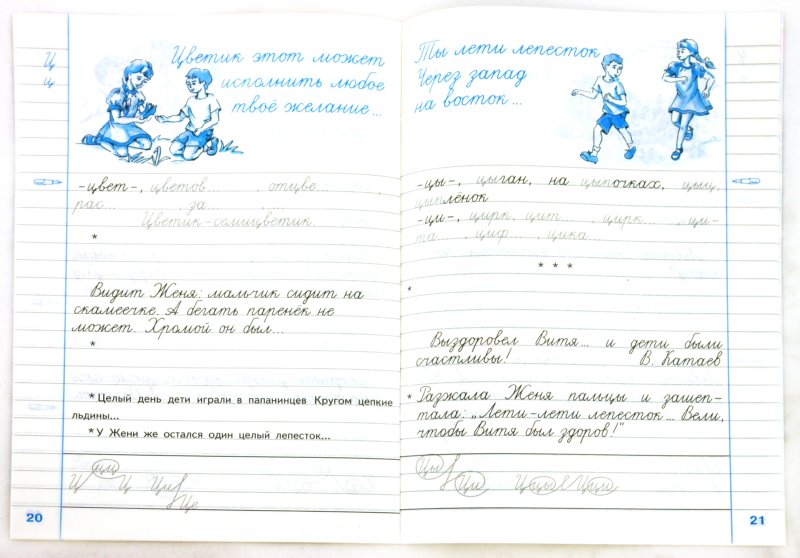 Ц
ц
Цветик этот может
исполнить любое
твоё желание...
-цвет-, цветов... , отцве... ,
рас... за... .
Цветик-семицветик.
*
Видит Женя: мальчик сидит на
скамеечке. А бегать паренёк не
может. Хромой он был...
*
*Целый день дети играли в папанинцев Кругом цепкие
льдины...
*У Жени же остался один целый лепесток...
Ц циц Ц Ци Це
20
Ты лети лепесток
Через запад
на восток...
-цы-, цыган, на цыпочках, цыц,
цыплёнок
-ци-, цирк, цит... , цирк... , ци-
та... , циф... , цика...
* * *
*
Выздоровел Витя... и дети были
счастливы! В. Катаев
* Разжала Женя пальцы и зашеп-
тала: „Лети-лети лепесток... Вели,
чтобы Витя был здоров!"
Цы Ци Цыцы Цици
21